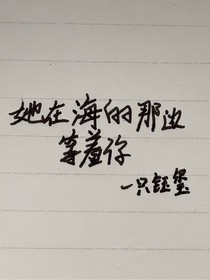 她在海的那边
等着你
一只钰玺